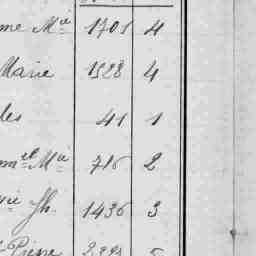 me Mie 1701 4
Marie 1528 4
les 41 1
Mie 716 2
Jh. 1436 3
Pierre